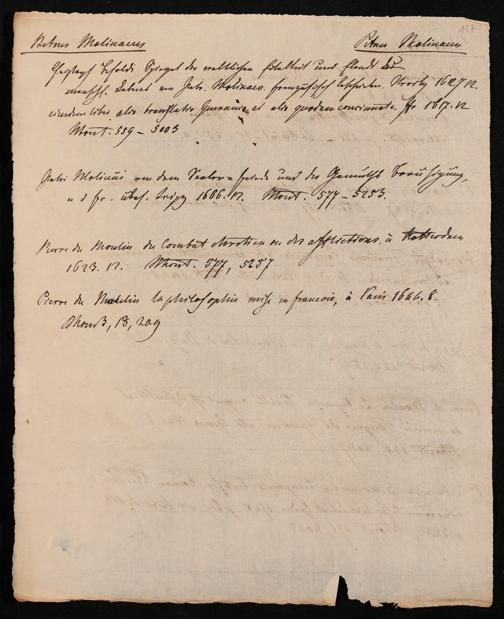 Petrus Molinaeus Petrus Molinaeus
Christoph Besolds Spiegel der weltlichen Eitelkeit und Elendt des
menschl. Lebens von Petr. Molinaeo französisch beschrieben. 1627 12.
eiusdem liber, alio translatus Germanice, et alio quodam 1617. 12
Mont. 559 – 5003
Petri Molinäi von dem Seelen = friede und der Gemüths Beruhigung,
a d fr. übs. Leipzig 1666. 12. Mont. 577 – 5253.
Pierre du Moulin du Combat chrestien ou des afflictions. à Rotterdam
1623. 12. Mont. 577, 5257
Pierre du Moulin la philosophie mise en francois, à Paris 1644. 8.
18, 209